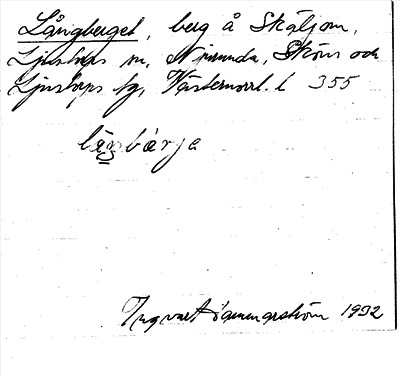 Långberget, berg å Skäljom,
Ljustorps sn, Njurunda, Sköns och
Ljustorps tg, Västernorrl. l 355
långbärje
Ingvart Hammarström 1932